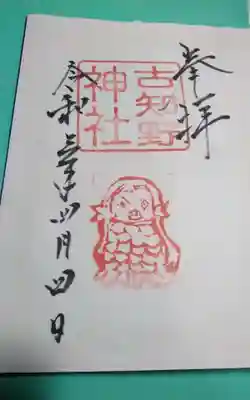 奉拝
古知野
神社
令和三年四月四日